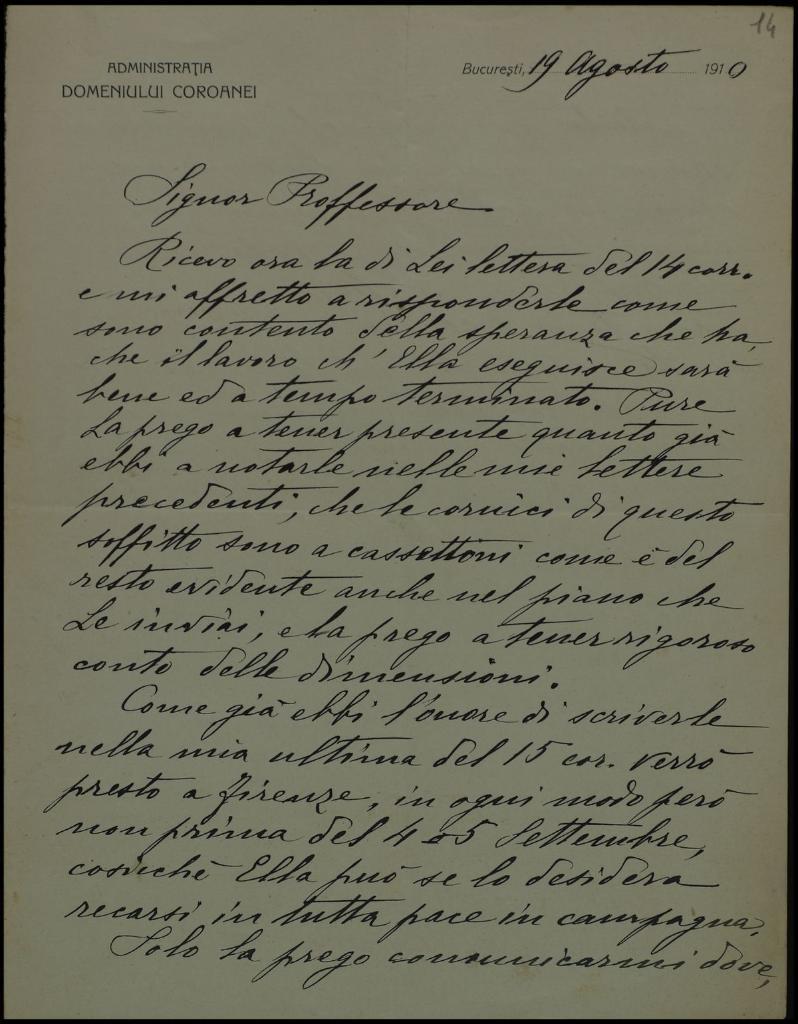 14
ADMINISTRAȚIA
DOMENIULUI COROANEI
București, 19 Agosto 1910
Signor Proffessore
Ricevo ora la di Lei lettera del 14 corr.
e mi affretto a risponderle come
sono contento della speranza che ha,
che il lavoro ch' Ella eseguisce sarà
bene ed a tempo terminato. Pure
La prego a tener presente quanto già
ebbi a notarle nelle mie lettere
precedenti, che le cornici di questo
soffitto sono a cassettoni come è del
resto evidente anche nel piano che
Le inviai, e la prego a tener rigoroso
conto delle dimensioni.
Come già ebbi l'onore di scriverle
nella mia ultima del 15 cor. verrò
presto a Firenze, in ogni modo però
non prima del 4 o 5 Settembre,
cosicchè Ella può se lo desidera
recarsi in tutta pace in campagna.
Solo la prego comunicarmi dove,